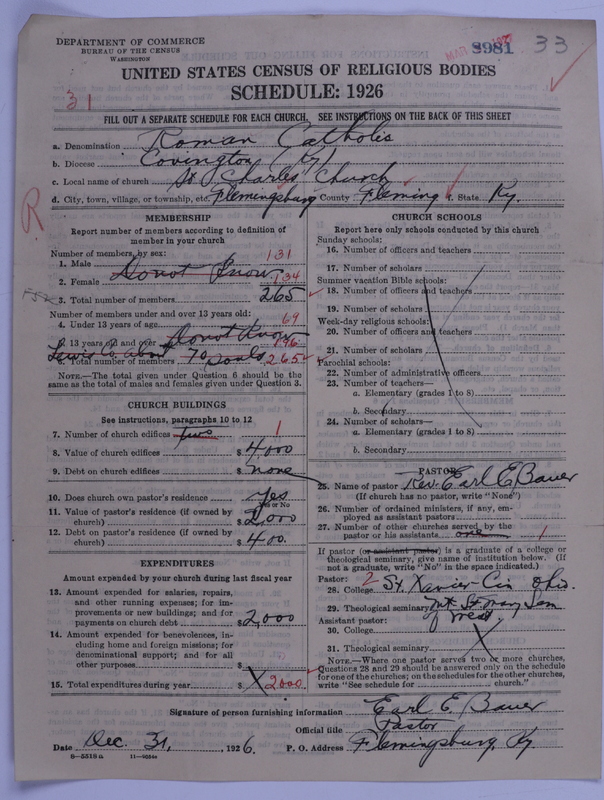 DEPARTMENT OF COMMERCE
BUREAU OF THE CENSUS
WASHINGTON
3981
33
UNITED STATES CENSUS OF RELIGIOUS BODIES
SCHEDULE: 1926
31
FILL OUT A SEPARATE SCHEDULE FOR EACH CHURCH. SEE INSTRUCTIONS ON THE BACK OF THIS SHEET
a. Denomination Roman Catholic
b. Diocese Covington Ky
c. Local name of church St Charles Church
d. City, town, village, or township, etc. Flemingsburg County Fleming State Ky.
R
MEMBERSHIP
Report number of members according to definition of member in your church
Number of members, by sex:
1. Male 131
Do not Know
2. Female 134
3. Total number of members 265
Number of members under and over 13 years old:
4. Under 13 years of age 69
Do not Know
5. 13 years old and over 196
Lewis Co. about 70 souls
6. Total number of members 265
NOTE.—The total given under Question 6 should be the same as the total of males and females given under Question 3.
CHURCH BUILDINGS
See instructions, paragraphs 10 to 12
7. Number of church edifices two 1
8. Value of church edifices $ 4,000
9. Debt on church edifices $ none
10. Does church own pastor's residence Yes
Yes or No
11. Value of pastor's residence (if owned by church) $ 2,000
12. Debt on pastor's residence (if owned by church) $ 400.
EXPENDITURES
Amount expended by your church during last fiscal year
13. Amount expended for salaries, repairs, and other running expenses; for improvements or new buildings; and for payments on church debt $ 2,000
14. Amount expended for benevolences, including home and foreign missions; for denominational support; and for all other purposes $
15. Total expenditures during year $ 2000
CHURCH SCHOOLS
Report here only schools conducted by this church
Sunday schools:
16. Number of officers and teachers
17. Number of scholars
Summer vacation Bible schools:
18. Number of officers and teachers
19. Number of scholars
Week-day religious schools:
20. Number of officers and teachers
21. Number of scholars
Parochial schools:
22. Number of administrative officers
23. Number of teachers—
a. Elementary (grades 1 to 8)
b. Secondary
24. Number of scholars—
a. Elementary (grades 1 to 8)
b. Secondary
PASTOR
25. Name of pastor Rev. Earl E Bauer
(If church has no pastor, write "None")
26. Number of ordained ministers, if any, employed as assistant pastors
27. Number of other churches served by the pastor or his assistants one 1
If pastor (or assistant pastor) is a graduate of a college or theological seminary, give name of institution below. (If not a graduate, write "No" in the space indicated.)
Pastor: 2
28. College St. Xavier Cin Ohio.
29. Theological seminary Mt St Mary Sem
of West
Assistant pastor:
30. College
31. Theological seminary
NOTE.—Where one pastor serves two or more churches, Questions 28 and 29 should be answered only on the schedule for one of the churches; on the schedules for the other churches, write "See schedule for church."
Signature of person furnishing information Earl E. Bauer
Official title Pastor
Date Dec 31, 1926. P. O. Address Flemingsburg, Ky.
8—5518a